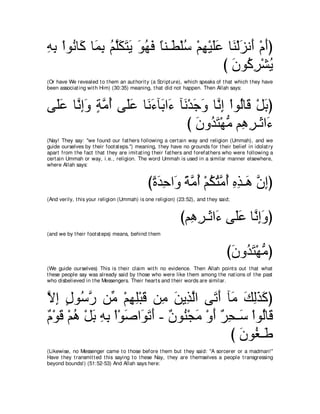 (أَمْ أَنزَلْنَا عَلَيْهِمْ سُلْطَـناً فَهُوَ يَتَكَلَّمُ بِمَا كَانُواْ بِهِ
يُشْرِكُونَ )
(Or have We revealed to them an authority (a Scripture), which speaks of that which they have
been associating with Him) (30:35) meaning, that did not happen. Then Allah says:
(بَلْ قَالُواْ إِنَّا وَجَدْنَآ ءَابَآءَنَا عَلَى أُمَّةٍ وَإِنَّا عَلَى
ءَاثَـرِهِم مُّهْتَدُونَ )
(Nay! They say: "we found our fathers following a certain way and religion (Ummah), and we
guide ourselves by their footsteps.") meaning, they have no grounds for their belief in idolatry
apart from the fact that they are imitating their fathers and forefathers who were following a
certain Ummah or way, i.e., religion. The word Ummah is used in a similar manner elsewhere,
where Allah says:
(إِنَّ هَـذِهِ أُمَّتُكُمْ أُمَّةً وَاحِدَةً)
(And verily, this your religion (Ummah) is one religion) (23:52), and they said;
(وَإِنَّا عَلَى ءَاثَـرِهِم)
(and we by their footsteps) means, behind them
(مُّهْتَدُونَ)
(We guide ourselves) This is their claim with no evidence. Then Allah points out that what
these people say was already said by those who were like them among the nations of the past
who disbelieved in the Messengers. Their hearts and their words are similar.
(كَذَلِكَ مَآ أَتَى الَّذِينَ مِن قَبْلِهِمْ مِّن رَّسُولٍ إِلاَّ
قَالُواْ سَـحِرٌ أَوْ مَجْنُونٌ - أَتَوَاصَوْاْ بِهِ بَلْ هُمْ قَوْمٌ
طَـغُونَ )
(Likewise, no Messenger came to those before them but they said: "A sorcerer or a madman!"
Have they transmitted this saying to these Nay, they are themselves a people transgressing
beyond bounds!) (51:52-53) And Allah says here: